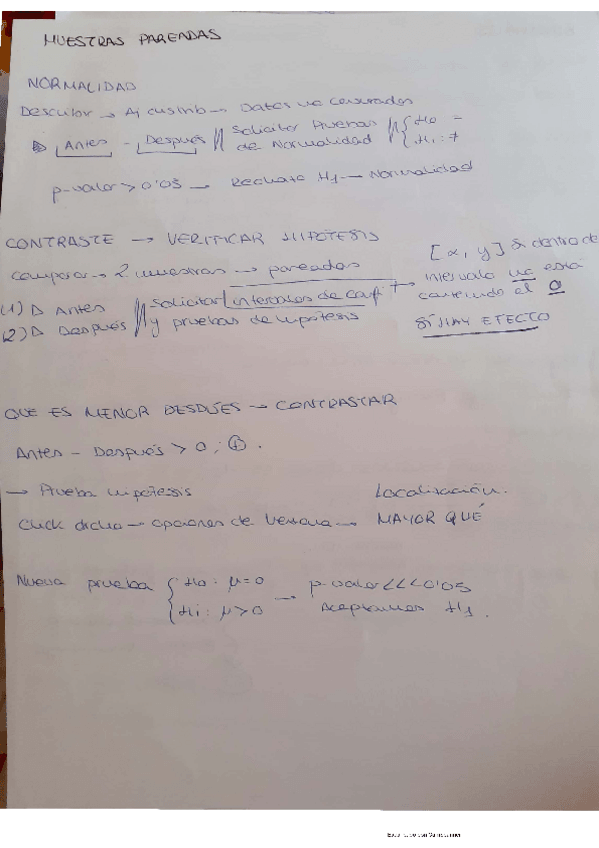 MUESTRAS PAREADAS
NORMALIDAD
Describir → Aj distrib → Datos no censurados
▷ Antes - Después // Solicitar Pruebas de Normalidad // { H0 = H1: ≠
p-valor > 0'05 → Rechazo H1 → Normalidad
CONTRASTE → VERIFICAR HIPÓTESIS
comparar → 2 muestras → pareadas
(1) ▷ Antes
(2) ▷ Después // Solicitar intervalos de conf y pruebas de hipótesis
→ [x, y] Si dentro de
intervalo no está
contenido el 0
SÍ HAY EFECTO
QUE ES MENOR DESPUÉS → CONTRASTAR
Antes - Después > 0 ; ⊕.
→ Prueba hipótesis
Localización.
Click dcho → opciones de ventana → MAYOR QUÉ
Nueva prueba { H0: μ=0 → p-valor <<<0'05
H1: μ>0 Aceptamos H1.